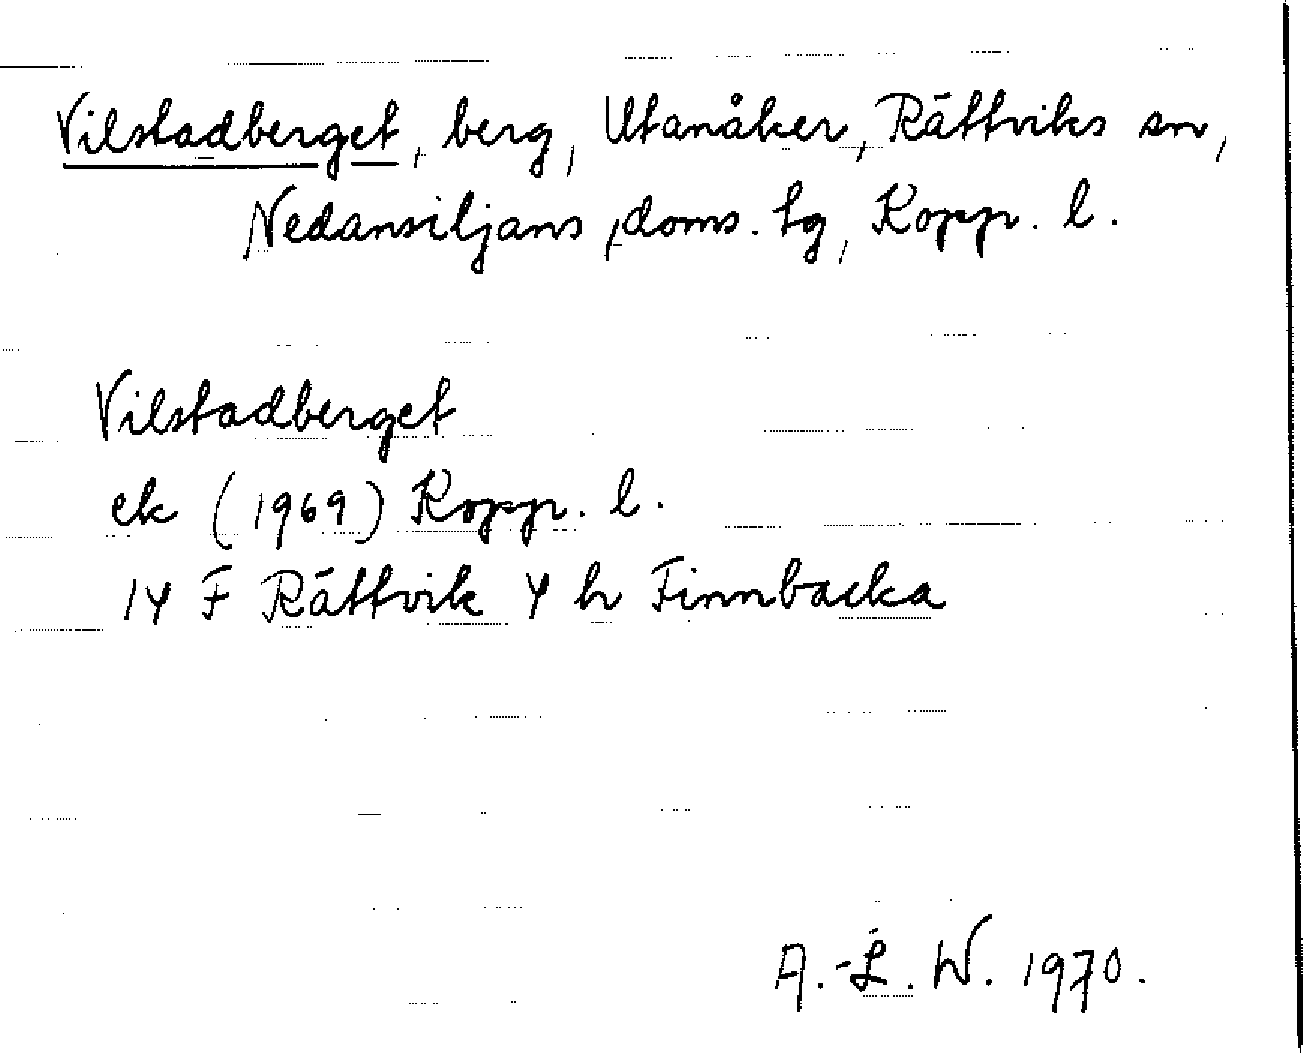 Vilstadberget, berg, Utanåker, Rättviks sn,
Nedansiljans doms. tg, Kopp. l.
Vilstadberget
ek (1969) Kopp. l.
14 F Rättvik 4 h Finnbacka
A.-L. W. 1970.